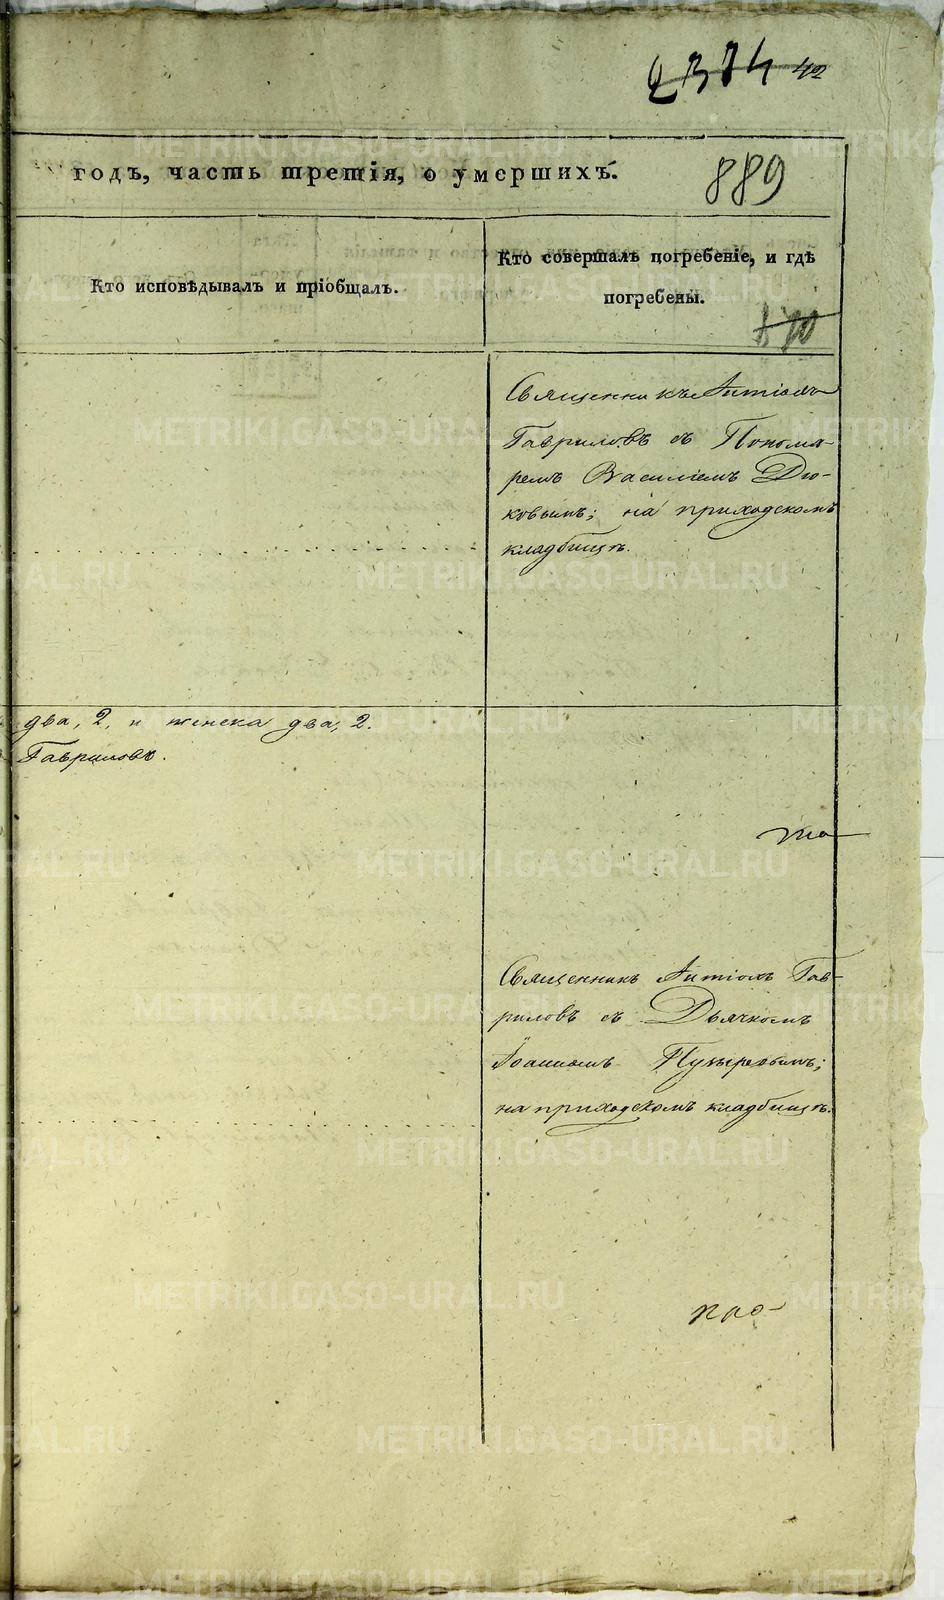 2374 42
годъ, часть третія, о умершихъ.
889
Кто исповѣдывалъ и пріобщалъ.
Кто совершалъ погребеніе, и гдѣ
погребены.
Священникъ Антіохъ
Гавриловъ съ Понома-
ремъ Василіемъ Дю-
ковымъ; на приходскомъ
кладбищѣ.
два, 2, и женска два, 2.
Гавриловъ.
Священникъ Антіохъ Гав-
риловъ съ Дьячкомъ
Іоанномъ Пузыревымъ;
на приходскомъ кладбищѣ.
METRIKI.GASO-URAL.RU